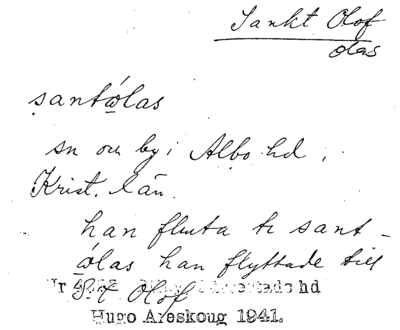 Sankt Olof
olas
santólas
sn och by i Albo hd,
Krist. län.
han fluta te sant-
ólas han flyttade till
S:t Olof
hd
Hugo Areskoug 1941.